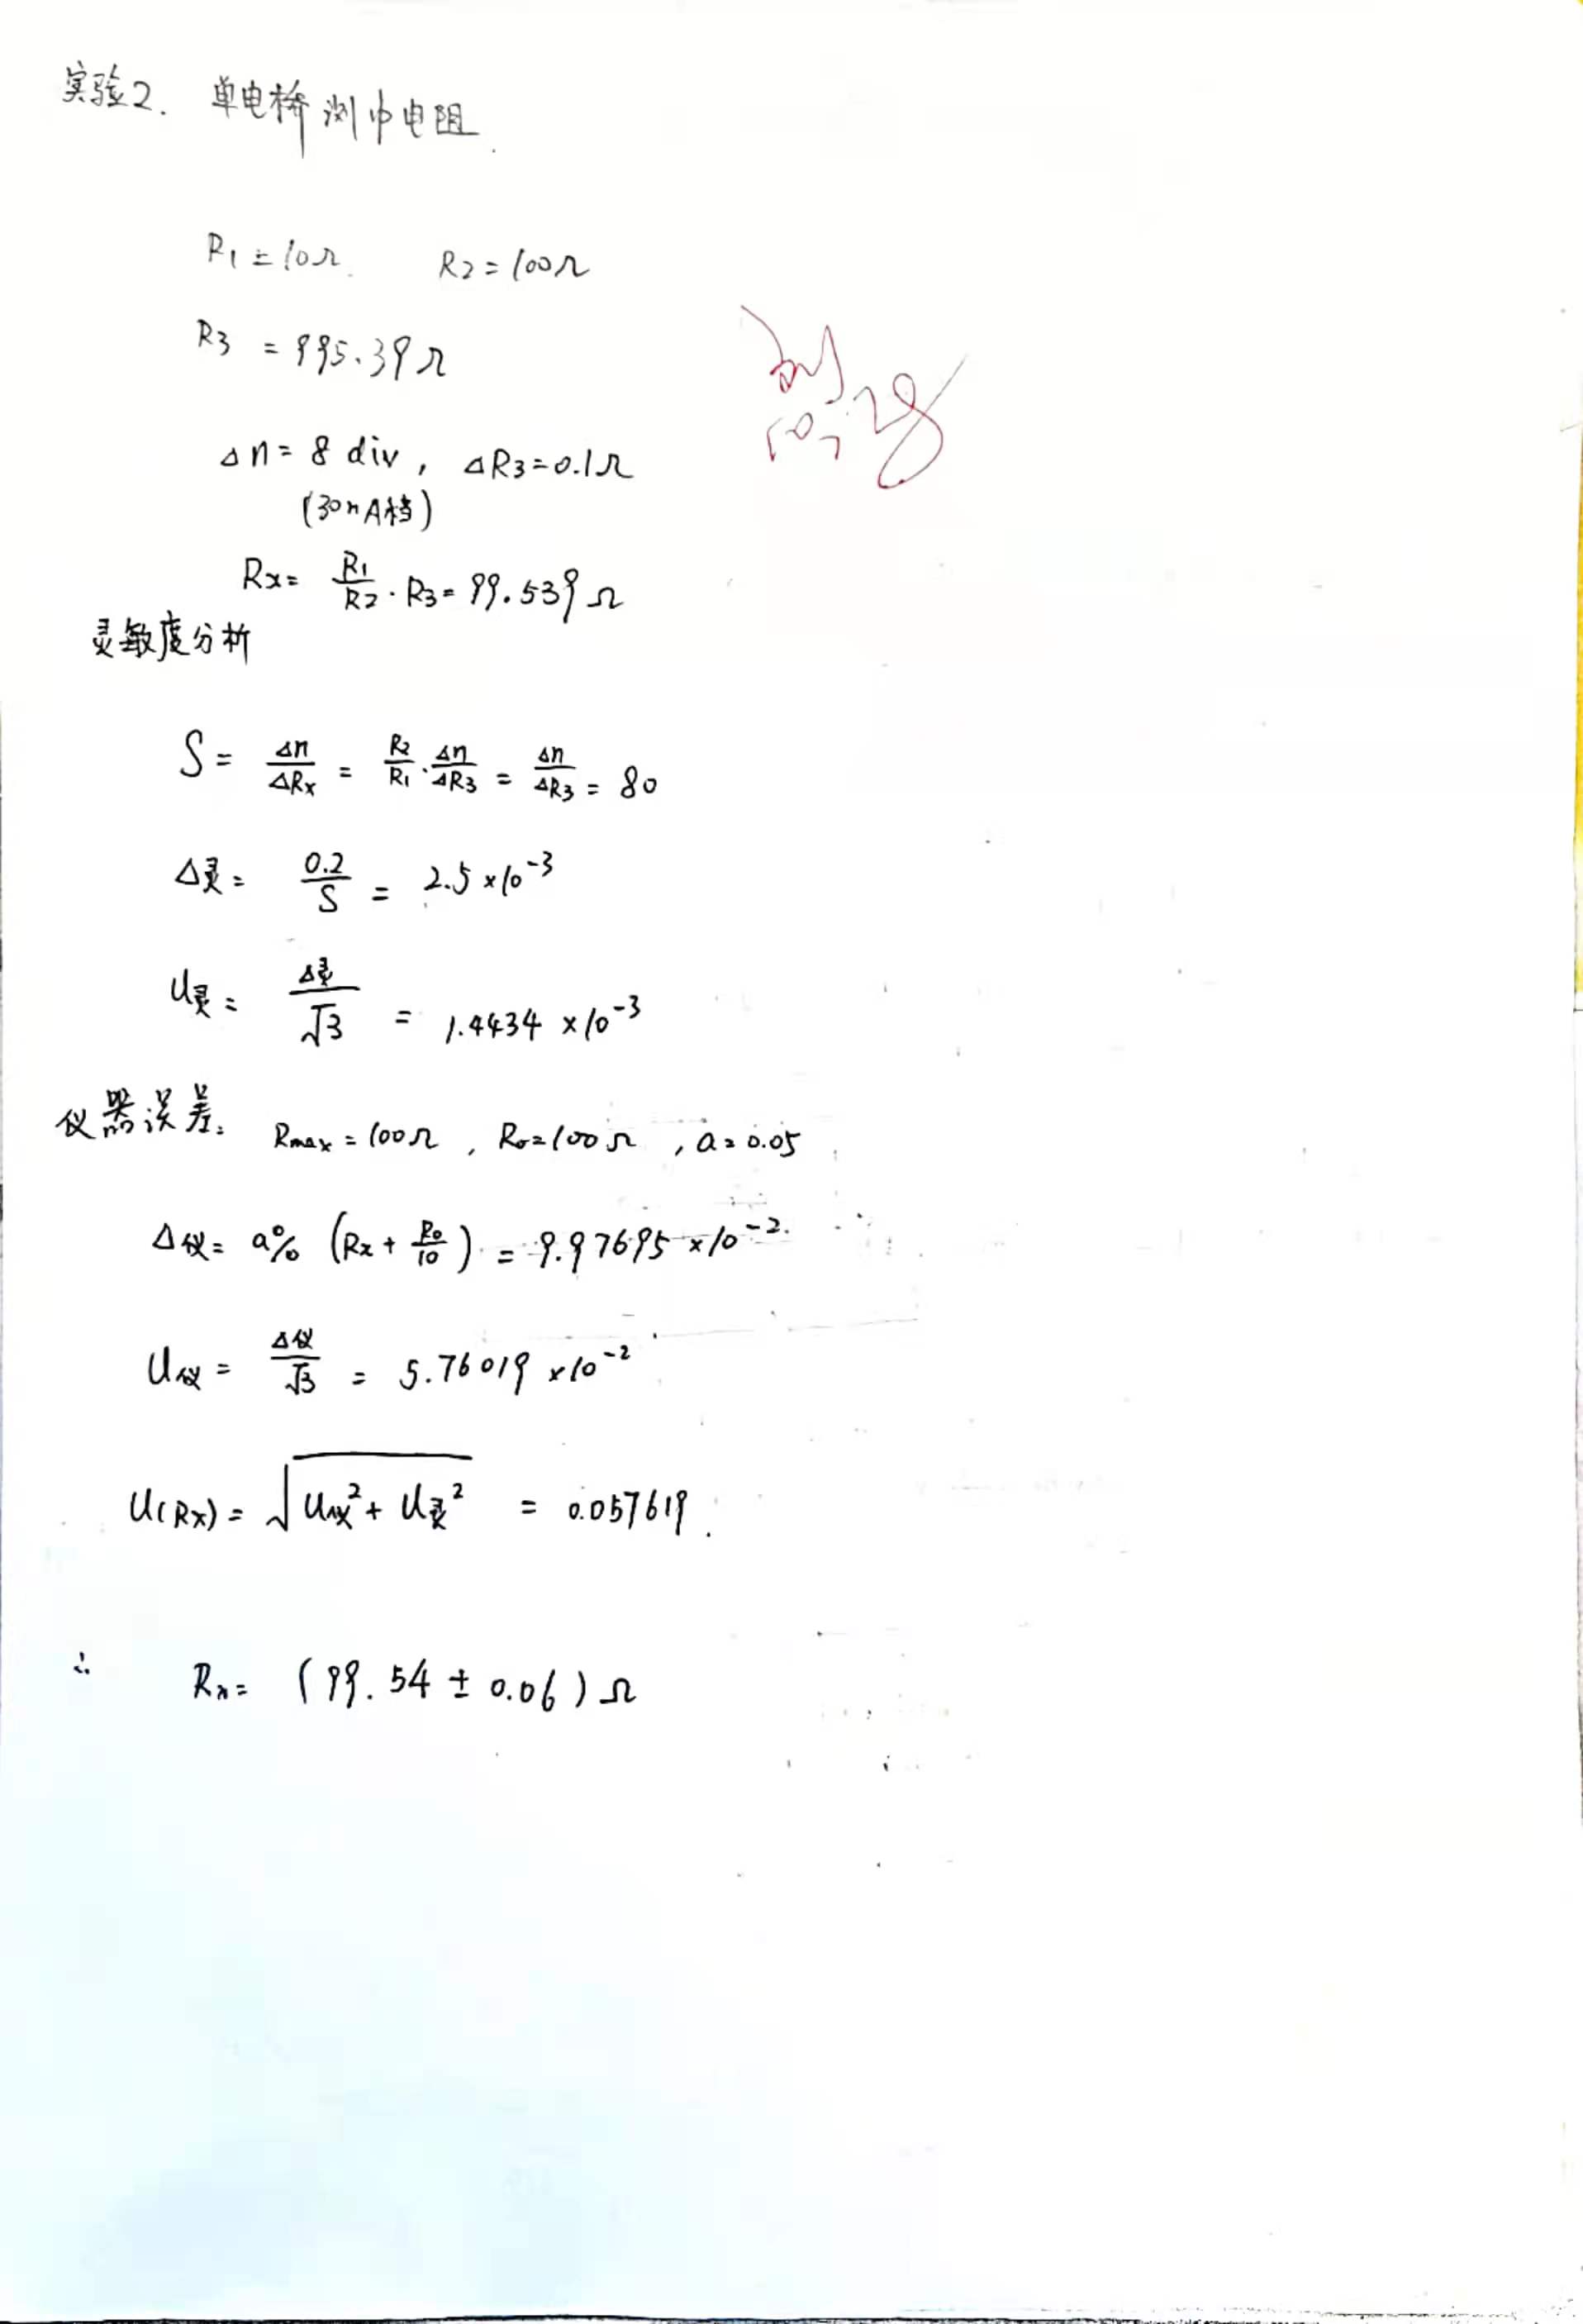 实验2. 单电桥测中电阻.
R1 = 10Ω. R2 = 100Ω
R3 = 995.39Ω
Δn = 8 div, ΔR3 = 0.1Ω
(30nA档)
Rx = R1/R2 · R3 = 99.539Ω
灵敏度分析
S = Δn/ΔRx = R2/R1 · Δn/ΔR3 = Δn/ΔR3 = 80
Δ灵 = 0.2/S = 2.5×10⁻³
U灵 = Δ灵/√3 = 1.4434×10⁻³
仪器误差: Rmax = 100Ω, Ro = 100Ω, a = 0.05
Δ仪 = a% (Rx + Ro/10) = 9.97695×10⁻².
U仪 = Δ仪/√3 = 5.76019×10⁻²
U(Rx) = √(U仪² + U灵²) = 0.057619.
∴ Rx = (99.54 ± 0.06)Ω